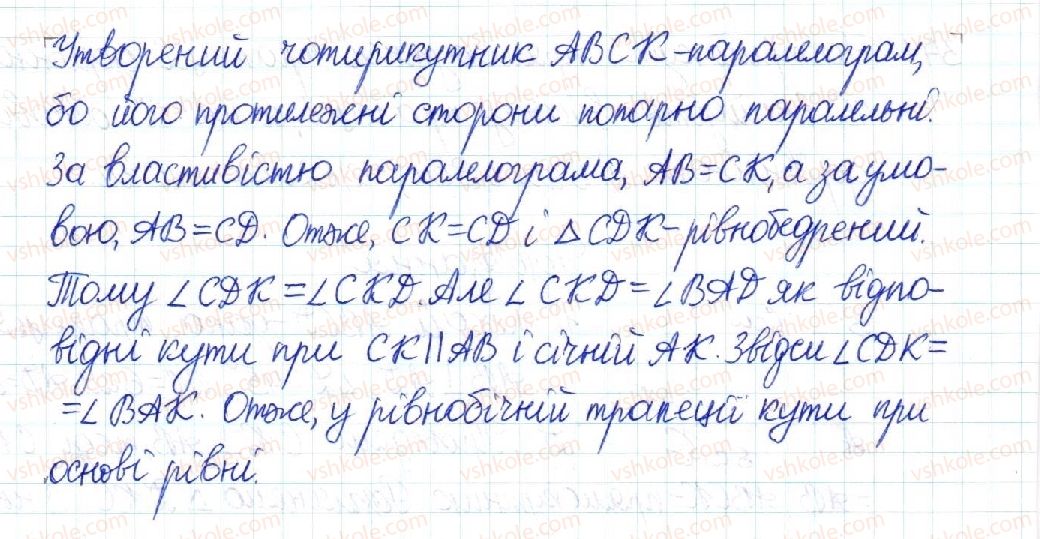 Утворений чотирикутник ABCK-паралелограм,
бо його протилежні сторони попарно паралельні.
За властивістю паралелограма, AB=CK, а за умо-
вою, AB=CD. Отже, CK=CD і △CDK-рівнобедрений.
Тому ∠CDK=∠CKD. Але ∠CKD=∠BAD як відпо-
відні кути при CK||AB і січній AK. Звідси ∠CDK=
=∠BAK. Отже, у рівнобічній трапеції кути при
основі рівні.